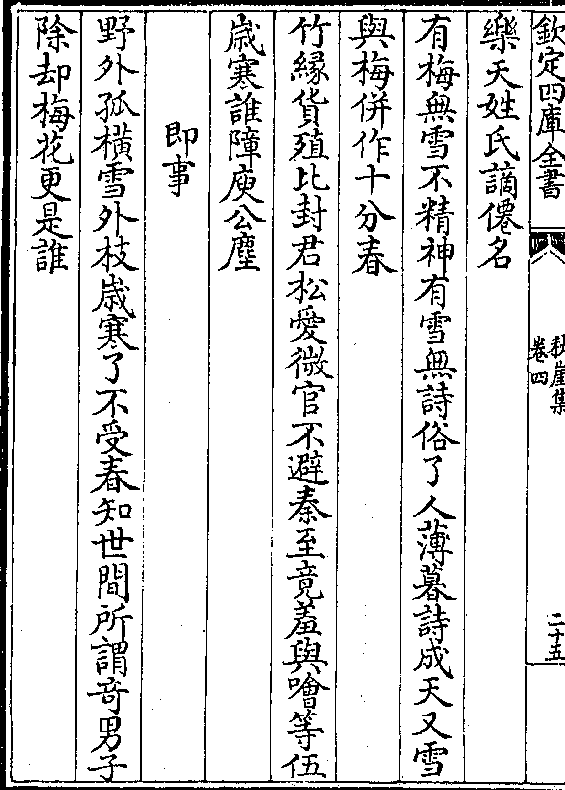 欽定四庫全書
秋崖集
卷四
二十五
樂天姓氏謫僊名
有梅無雪不精神有雪無詩俗了人薄暮詩成天又雪
與梅併作十分春
竹緣貨殖比封君松愛微官不避秦至竟羞與噲等伍
歲寒誰障庾公塵
即事
野外孤橫雪外枝歲寒了不受春知世間所謂奇男子
除却梅花更是誰